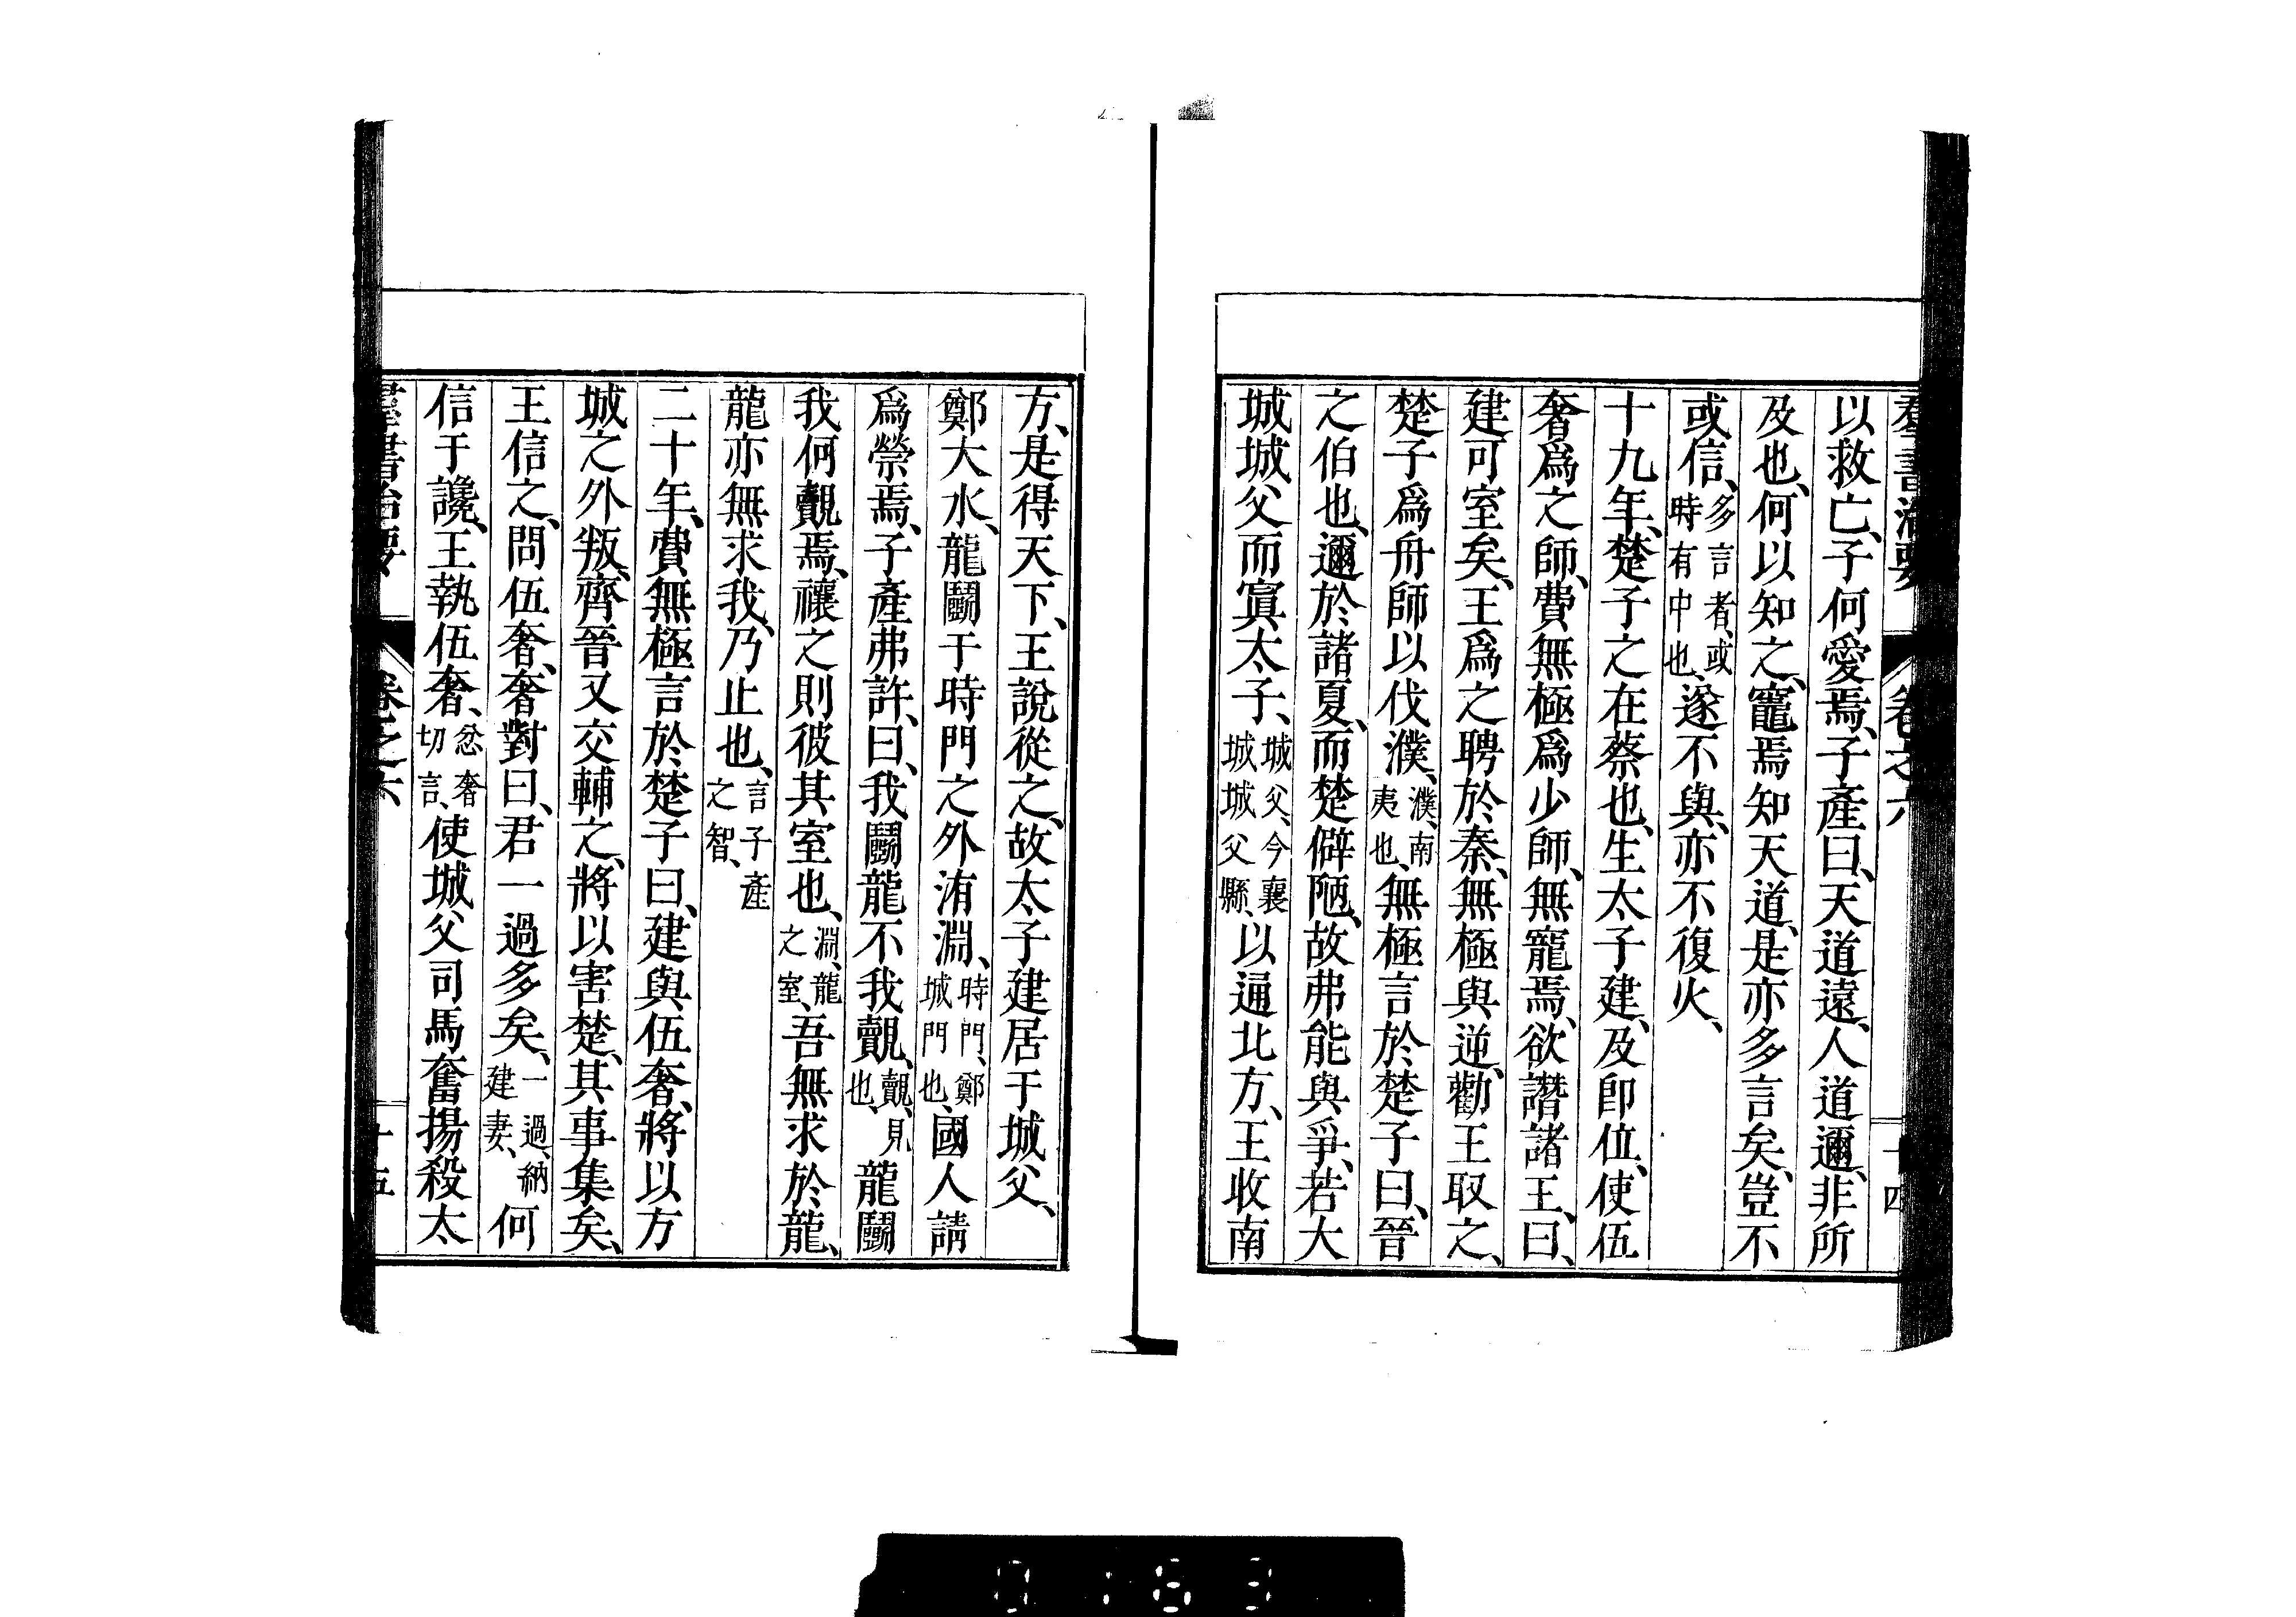 羣書治要 卷之六 十四
以救亡、子何愛焉、子產曰、天道遠、人道邇、非所
及也、何以知之、竈焉知天道、是亦多言矣、豈不
或信、多言者、或時有中也、遂不與、亦不復火、
十九年、楚子之在蔡也、生太子建、及卽位、使伍
奢爲之師、費無極爲少師、無寵焉、欲譖諸王、曰、
建可室矣、王爲之聘於秦、無極與逆、勸王取之、
楚子爲舟師以伐濮、濮、南夷也、無極言於楚子曰、晉
之伯也、邇於諸夏、而楚僻陋、故弗能與爭、若大
城城父而寘太子、城父、今襄城城父縣、以通北方、王收南
方、是得天下、王說從之、故太子建居于城父、
鄭大水、龍鬬于時門之外洧淵、時門、鄭城門也、國人請
爲禜焉、子產弗許、曰、我鬬龍不我覿、覿、見也、龍鬬
我何覿焉、禳之則彼其室也、淵、龍之室、吾無求於龍、
龍亦無求我、乃止也、言子產之智、
二十年、費無極言於楚子曰、建與伍奢、將以方
城之外叛、齊晉又交輔之、將以害楚、其事集矣、
王信之、問伍奢、奢對曰、君一過多矣、一過、納建妻、何
信于讒、王執伍奢、忿奢切言、使城父司馬奮揚殺太
羣書治要 卷之六 十五
0183